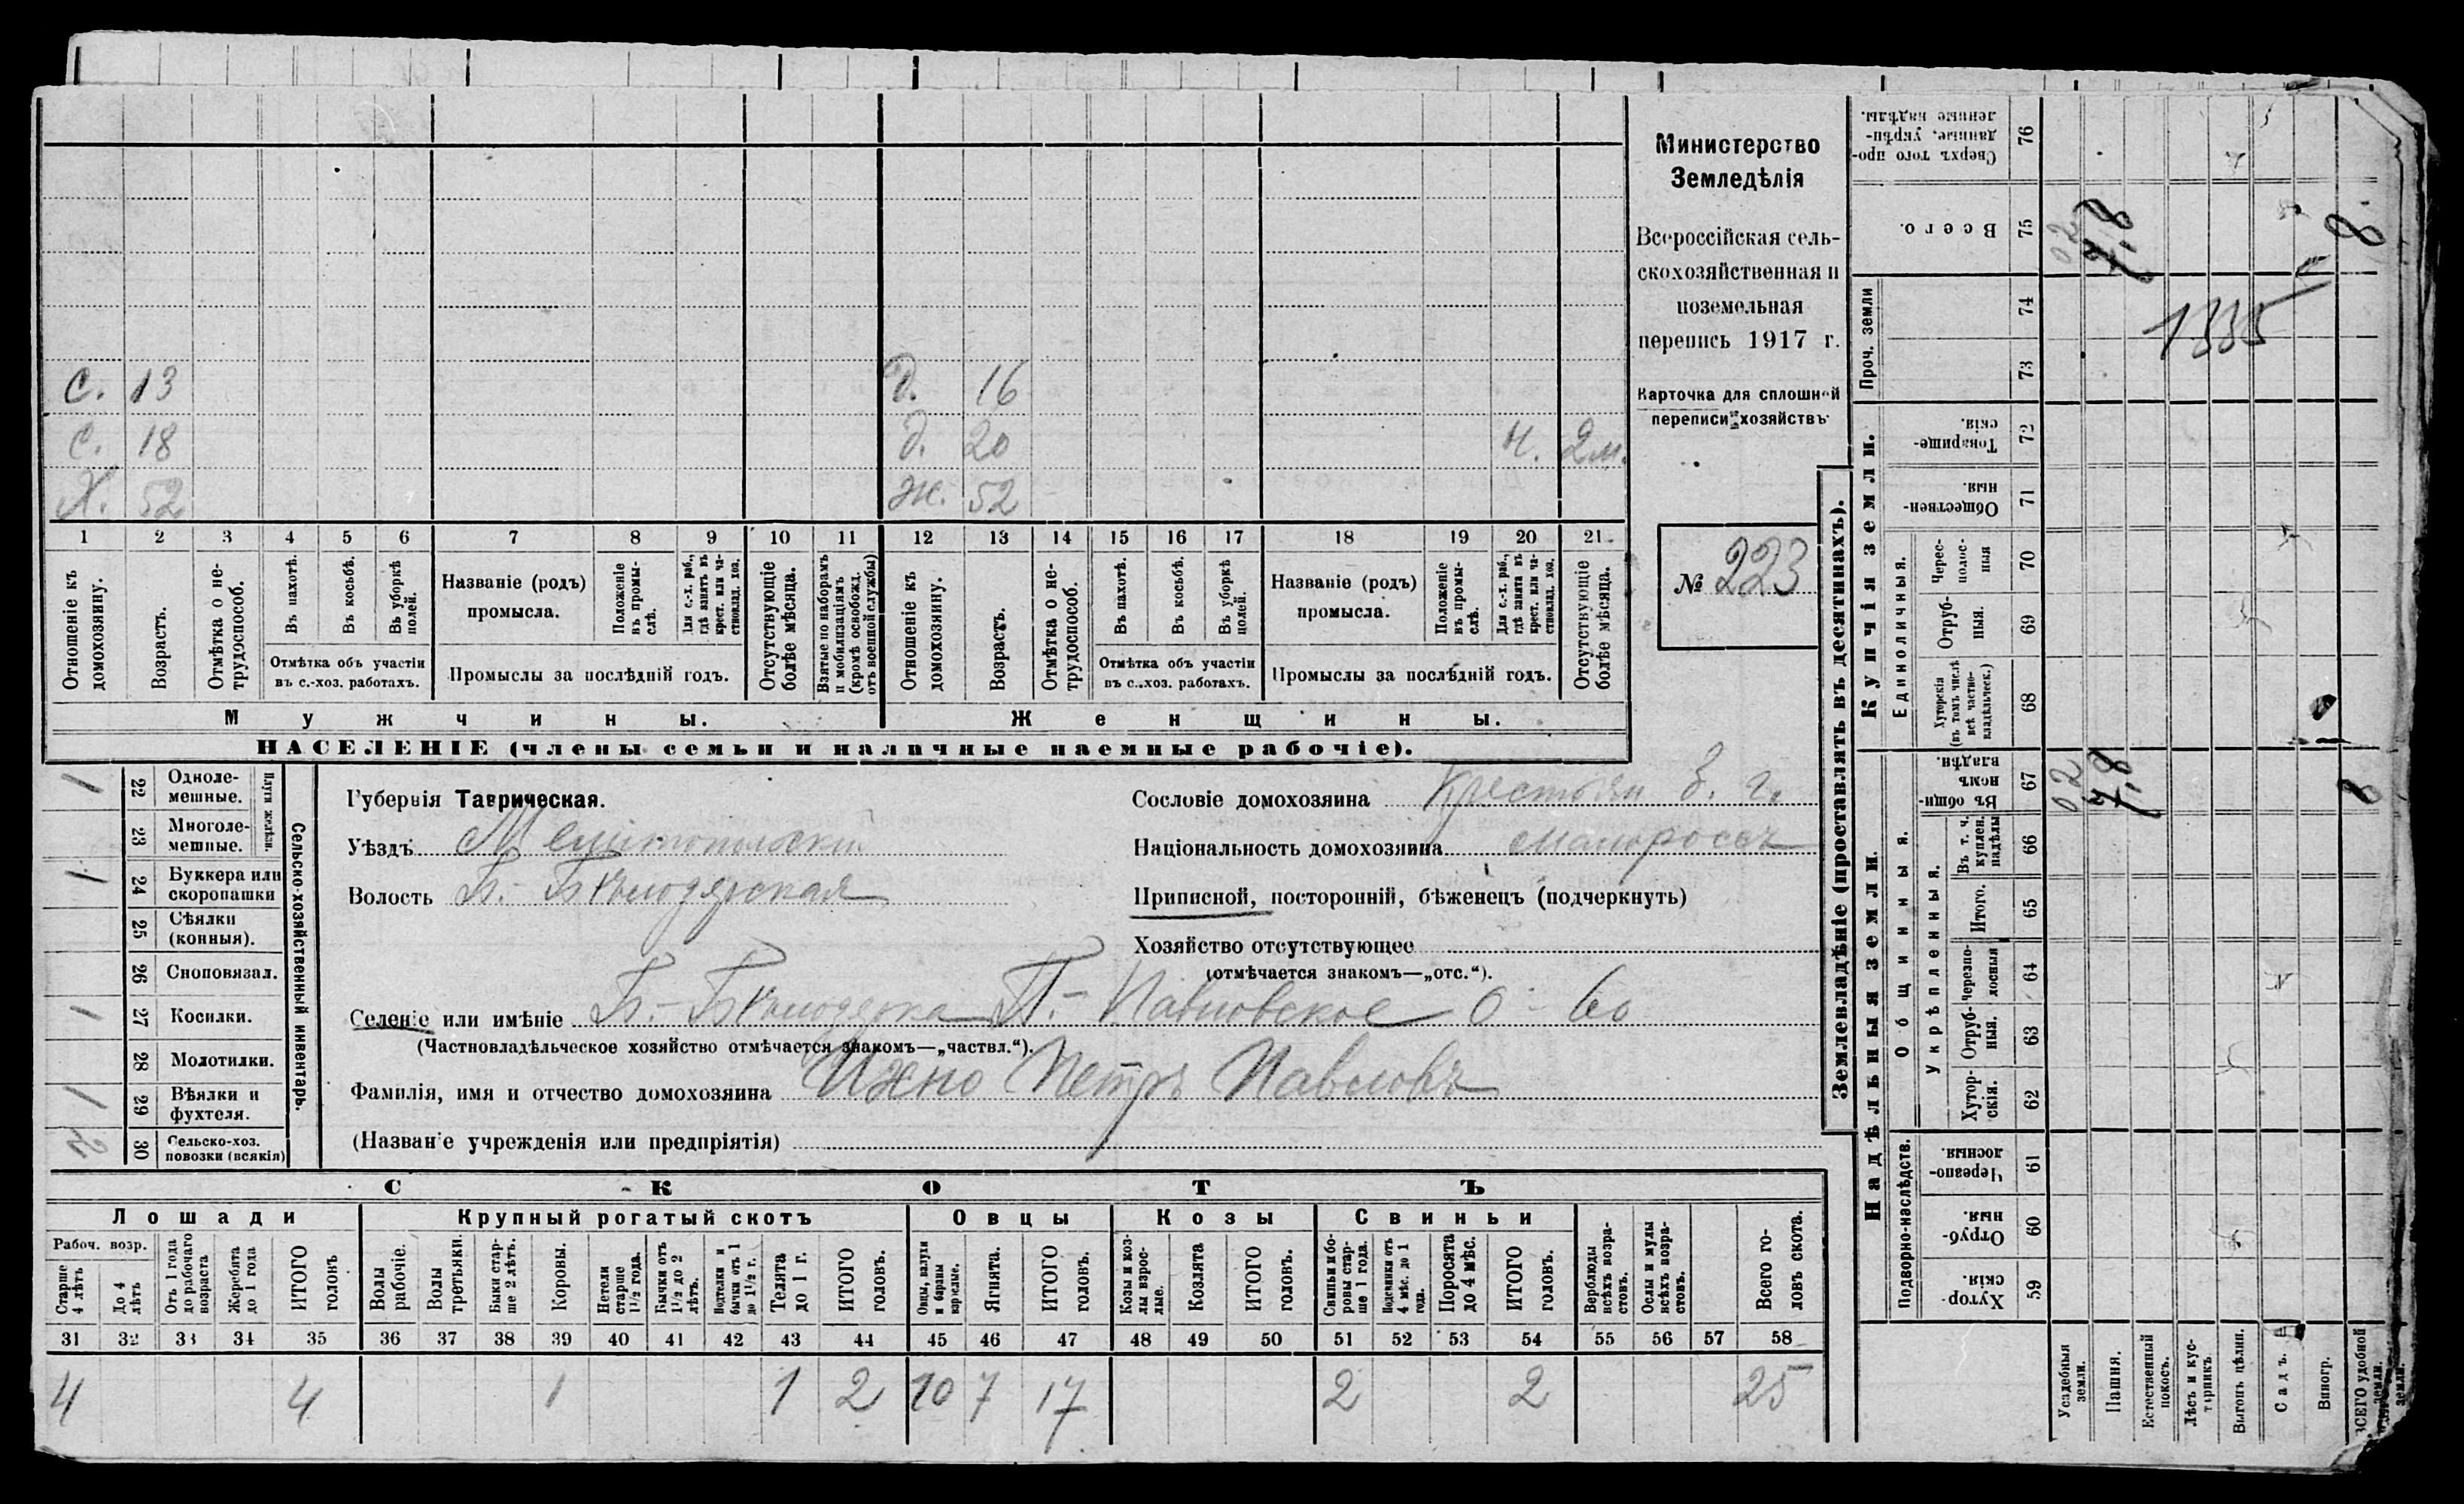 С. 13 Д. 16
С. 18 д. 20 н. 2 м.
Х. 52 Ж. 52
1 2 3 4 5 6 7 8 9 10 11 12 13 14 15 16 17 18 19 20 21
Отношеніе къ домохозяину.
Возрастъ.
Отмѣтка о не-трудоспособ.
Въ пахотѣ.
Въ косьбѣ.
Въ уборкѣ полей.
Отмѣтка объ участіи
въ с.-хоз. работахъ.
Названіе (родъ)
промысла.
Положеніе въ промы-слѣ.
Для с.-х. раб., гдѣ занятъ въ крест. или ча-стновлад. хоз.
Промыслы за послѣдній годъ.
Отсутствующіе болѣе мѣсяца.
Взятые по наборамъ и мобилизаціямъ (кромѣ освобожд. отъ военной службы)
Отношеніе къ домохозяину.
Возрастъ.
Отмѣтка о не-трудоспособ.
Въ пахотѣ.
Въ косьбѣ.
Въ уборкѣ полей.
Отмѣтка объ участіи
въ с.-хоз. работахъ.
Названіе (родъ)
промысла.
Положеніе въ промы-слѣ.
Для с.-х. раб., гдѣ занята въ крест. или ча-стновлад. хоз.
Промыслы за послѣдній годъ.
Отсутствующіе болѣе мѣсяца.
Мужчины. Женщины.
НАСЕЛЕНІЕ (члены семьи и наличные наемные рабочіе).
Министерство
Земледѣлія
Всероссійская сель-
скохозяйственная и
поземельная
перепись 1917 г.
Карточка для сплошной
переписи хозяйствъ
№ 223
Сельско-хозяйственный инвентарь.
Плуги желѣзн.
1 22 Одноле-мешные.
23 Многоле-мешные.
1 24 Буккера или скоропашки
25 Сѣялки (конныя).
26 Сноповязал.
1 27 Косилки.
28 Молотилки.
1 29 Вѣялки и фухтеля.
2 30 Сельско-хоз. повозки (всякія)
Губернія Таврическая.
Уѣздъ Мелитопольскій
Волость Б.-Бѣлозерская
Сословіе домохозяина Крестьян
Національность домохозяина малороссъ
Приписной, посторонній, бѣженецъ (подчеркнуть)
Хозяйство отсутствующее
(отмѣчается знакомъ—„отс.“).
Селеніе или имѣніе Б.-Бѣлозерка П.-Павловское о-во
(Частновладѣльческое хозяйство отмѣчается знакомъ—„частвл.“).
Фамилія, имя и отчество домохозяина Ихно Петръ Павловъ
(Названіе учрежденія или предпріятія)
СКОТЪ
Лошади Крупный рогатый скотъ Овцы Козы Свиньи
Рабоч. возр.
Старше 4 лѣтъ
До 4 лѣтъ
Отъ 1 года до рабочаго возраста
Жеребята до 1 года
ИТОГО головъ
Волы рабочіе.
Волы третьяки.
Быки стар-ше 2 лѣтъ.
Коровы.
Нетели старше 1½ года.
Бычки отъ 1½ до 2 лѣтъ.
Подтелки и бычки отъ 1 до 1½ г.
Телята до 1 г.
ИТОГО головъ.
Овцы, валухи и бараны взрослые.
Ягнята.
ИТОГО головъ.
Козы и коз-лы взрос-лые.
Козлята
ИТОГО головъ.
Свиньи и бо-ровы стар-ше 1 года.
Подсвинки отъ 4 мѣс. до 1 года.
Поросята до 4 мѣс.
ИТОГО головъ.
Верблюды всѣхъ возра-стовъ.
Ослы и мулы всѣхъ возра-стовъ.
Всего го-ловъ скота.
31 32 33 34 35 36 37 38 39 40 41 42 43 44 45 46 47 48 49 50 51 52 53 54 55 56 57 58
4 4 1 1 2 10 7 17 2 2 25
Землевладѣніе (проставлять въ десятинахъ).
Надѣльныя земли. Купчія земли. Проч. земли
Подворно-наслѣдств.
Общинныя.
Укрѣпленныя.
Единоличныя.
Хутор-скія. 59
Отруб-ныя. 60
Черезпо-лосныя. 61
Хутор-скія. 62
Отруб-ныя. 63
Черезпо-лосныя 64
Итого. 65
Въ т. ч. куплен. надѣлы 66
Въ общи-номъ владѣн. 67
Хуторскія (въ томъ числѣ всѣ частно-владѣльческ.) 68
Отруб-ныя. 69
Черес-полос-ныя 70
Обществен-ныя. 71
Товарище-скія. 72
73
74
Всего. 75
Сверхъ того про-данные, укрѣп-ленные надѣлы. 76
Усадебныя земли. 02 02
Пашня. 7,8 7,8
Естественный покосъ.
Лѣсъ и кус-тарникъ.
Выгонъ цѣлин.
Садъ.
Виногр.
ВСЕГО удобной земли. 8 8
1335